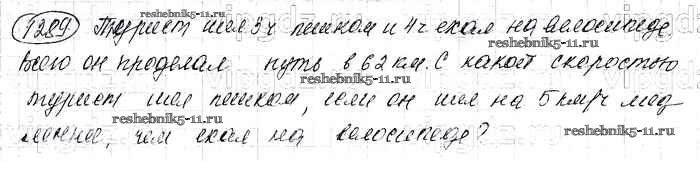 1289 Турист шел 3ч пешком и 4ч ехал на велосипеде
Всего он проделал путь в 62 км. С какой скоростью
турист шел пешком, если он шел на 5 км/ч мед
ленно, чем ехал на велосипеде?
reshebnik5-11.ru
reshebnik5-11.ru
reshebnik5-11.ru
reshebnik5-11.ru